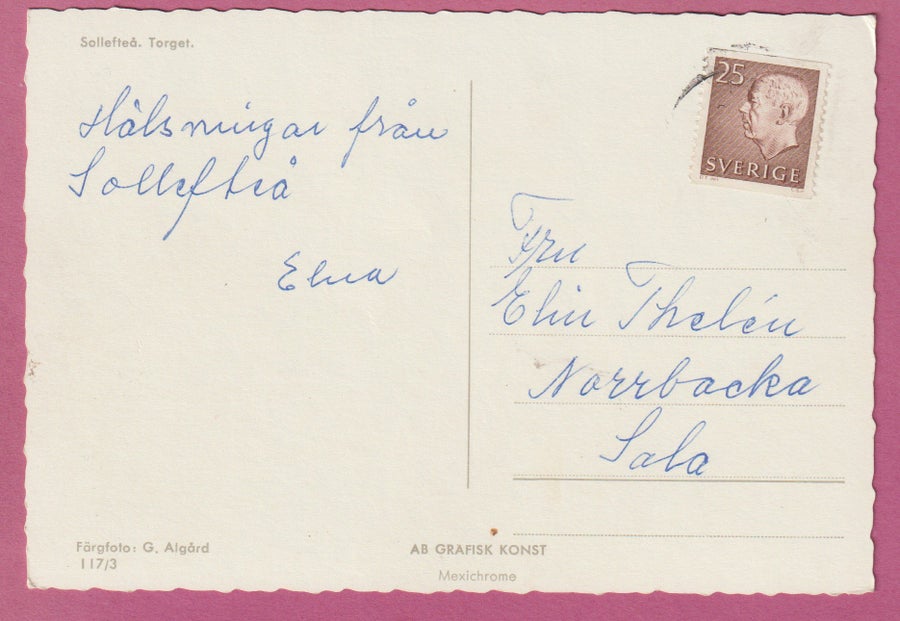 Sollefteå. Torget.
25
SVERIGE
Hälsningar från
Sollefteå
Elna
Fru
Elin Thelén
Norrbacka
Sala
Färgfoto: G. Algård
117/3
AB GRAFISK KONST
Mexichrome